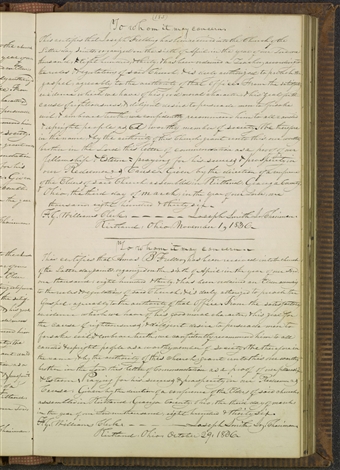 To Whom it may concern
This certifies that has been received into the church of the
Latter day Saints organized on the sixth of April in the year of our Lord one
thousand eight hundred & thirty & has been ordained
according to the rules & regulations of said Church & is duly authorized to preach the
gospel agreeably to the authority of that office From the satisfactory
evidence which we have of his good moral character & his zeal for the
cause of righteousness & diligent desire to persuade men to forsake evil
& embrace truth we confidently recommend him to all candid
& upright people as a worthy member of society We therefore
in the name & by the authority of this church grant unto this our worthy
brother in the Lord this letter of commendation as a proof of our
fellowship & Esteem & praying for his success & prosperity in
our Redeemer's Cause Given by the direction of a conference of
the Elders of said church assembled in Kirtland Geauga County
Ohio this third day of March in the year of our Lord one
thousand eight hundred & thirty six
F. G. Williams Clerk Joseph Smith Jr Chairman
Kirtland Ohio November 1, 1836
To whom it may concern
This certifies that James has been received into the church
of the Latter day saints organized on the sixth of April in the year of our Lord
one thousand eight hundred & thirty & has been ordained according
to the rules & regulations of said Church & is duly authorized to preach the
Gospel agreeably to the authority of that office From the satisfactory
evidence which we have of his good moral character & his zeal for
the cause of righteousness & diligent desire to persuade men to
forsake evil & embrace truth we confidently recommend him to all
candid & upright people as a worthy member of society We therefore in
the name & by the authority of this church grant unto this our worthy
brother in the Lord this letter of Commendation as a proof of our fellowship
& Esteem Praying for his success & prosperity in our Redeemer's
Cause Given by the direction of a conference of the Elders of said church
assembled in Kirtland Geauga County Ohio this third day of March
in the year of our Lord one thousand eight hundred & thirty Six
F. G. Williams Clerk Joseph Smith Jr Chairman
Kirtland Ohio October 29, 1836